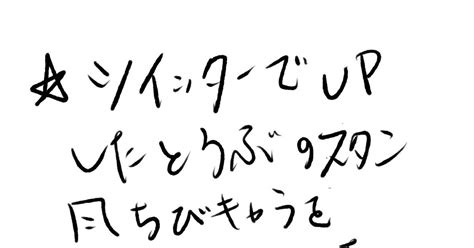 ☆ツイッターでUP
したとうぶのスタン
風ちびキャラを